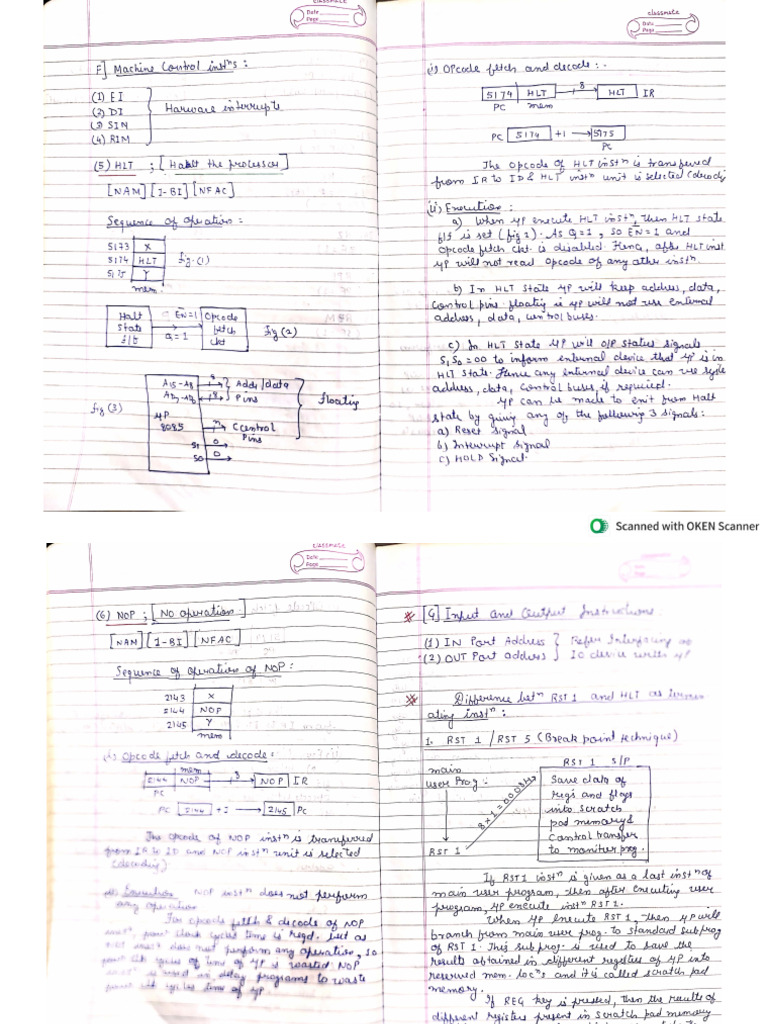 classmate
Date
Page
F] Machine Control instⁿs :
(1) EI
(2) DI
(3) SIN
(4) RIM
Harware interrupts
(5) HLT ; [Halt the processor]
[NAM] [1-BI] [NFAC]
Sequence of operation :
5173 X
5174 HLT
5175 Y
mem.
fig (1)
Halt State f/f
EN=1
Q=1
Opcode fetch ckt
fig (2)
fig (3)
A15-A8 8
AD7-AD0 8
Adds/data Pins
μP
8085
Control Pins
Floating
S1 0
S0 0
classmate
Date
Page
i) Opcode fetch and decode : -
5174 HLT 8 HLT IR
PC mem
PC 5174 +1 → 5175
PC
The opcode of HLT instⁿ is transferred
from IR to ID & HLT instⁿ unit is selected (decode)
ii) Execution :
a) When μP execute HLT instⁿ, then HLT state
f/f is set (fig 2). As Q=1, so EN=1 and
Opcode fetch ckt. is disabled. Henc, after HLT inst
μP will not read opcode of any other instⁿ.
b) In HLT state μP will keep address, data,
control pins floating ie μP will not use external
address, data, control buses.
c) In HLT state μP will O/P status signals
S1 S0 = 00 to inform external device that μP is in
HLT state. Hence any external device can use
address, data, control buses, if required.
μP can be made to exit from Halt
state by giving any of the following 3 signals :
a) Reset Signal
b) Interrupt Signal
c) HOLD Signal.
Scanned with OKEN Scanner
classmate
Date
Page
(6) NOP ; [No operation]
[NAM] [1-BI] [NFAC]
Sequence of operation of NOP :
2143 X
2144 NOP
2145 Y
mem
i) Opcode fetch and decode :
mem
2144 NOP 8 NOP IR
PC
PC 2144 +1 → 2145 PC
The opcode of NOP instⁿ is transferred
from IR to ID and NOP instⁿ unit is selected
(decoding)
ii) Execution NOP instⁿ does not perform
any operation
For opcode fetch & decode of NOP
instⁿ, four clock cycles time is reqd. but as
NOP instⁿ does not perform any operation, so
four clk cycles of time of μP is wasted. NOP
instⁿ is used in delay programs to waste
four clk cycles time of μP
[G] Input and Output Instructions :
(1) IN Port Address
(2) OUT Port address
Refer Interfacing as
IO device with μP
Difference betⁿ RST 1 and HLT as termin
ating instⁿ :
1. RST 1 / RST 5 (Break point technique)
main
user Prog :
RST 1
8x1=0008H
RST 1 S/P
Save data of
regs and flags
into scratch
pad memory &
control transfer
to monitor prog.
If RST 1 instⁿ is given as a last instⁿ of
main user program, then after executing user
program, μP execute instⁿ RST 1.
When μP execute RST 1, then μP will
branch from main user prog. to standard subprog
of RST 1. This subprog. is used to save the
results obtained in different registers of μP into
reserved mem. locⁿs and it is called scratch pad
memory.
If REG key is pressed, then the results of
different registers present in scratch pad memory